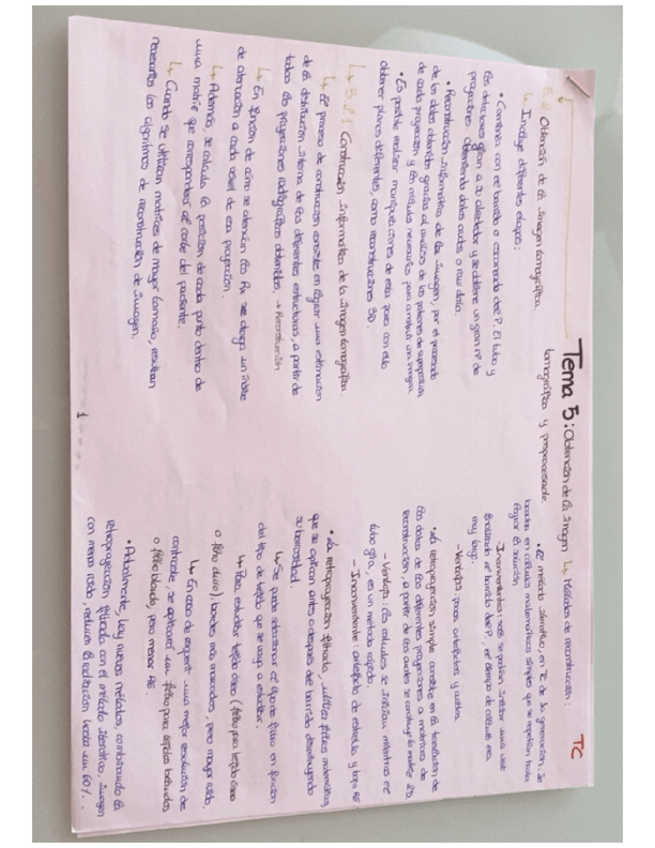 TC
Tema 5: Obtención de la imagen
tomográfica y posprocesado.
5.2. Obtención de la imagen tomográfica.
↳ Incluye diferentes etapas:
• Comienza con el barrido o escaneado del P. El tubo y
los detectores giran a su alrededor y se obtiene un gran nº de
proyecciones. Obteniendo datos crudos o raw data.
• Reconstrucción informática de la imagen, por el procesado
de los datos obtenidos gracias al análisis de los patrones de superposición
de cada proyección y los cálculos necesarios para construir una imagen.
• Es posible realizar manipulaciones de esta para con ello
obtener planos diferentes, como reconstrucciones 3D.
↳ 5.2.1 Construcción informática de la imagen tomográfica.
↳ El proceso de construcción consiste en lograr una estimación
de la distribución interna de las diferentes estructuras, a partir de
todas las proyecciones radiográficas obtenidas. → Reconstrucción
↳ En función de cómo se atenúen los Rx se otorga un índice
de atenuación a cada voxel de esa proyección.
↳ Además, se calcula la posición de cada punto dentro de
una matriz que corresponderá al corte del paciente.
↳ Cuando se utilizan matrices de mayor tamaño, resultan
necesarios los algoritmos de reconstrucción de imagen.
1
↳ Métodos de reconstrucción:
• El método iterativo, en TC de 1a generación. Se
basaba en cálculos matemáticos simples que se repetían hasta
lograr la solución
- Inconvenientes: solo se podían iniciar una vez
finalizado el barrido del P, el tiempo de cálculo era
muy largo.
- Ventajas: pocos artefactos y ruido.
• La retroproyección simple consiste en la traslación de
los datos de las diferentes proyecciones a matrices de
reconstrucción, a partir de las cuales se construye la matriz 2D.
- Ventaja: los cálculos se inician mientras el
tubo gira, es un método rápido.
- Inconveniente: artefacto de estrella y
• La retroproyección filtrada, utiliza filtros matemáticos,
que se aplican antes o después del barrido disminuyendo
su borrosidad.
↳ Se puede seleccionar el tipo de filtro en función
del tipo de tejido que se vaya a estudiar.
↳ Para estudiar tejido óseo (filtro para tejido óseo
o filtro duro), bordes más marcados, pero mayor ruido.
↳ En caso de requerir una mejor resolución de
contraste, se aplicará un filtro para tejidos blandos
o filtro blando, pero menor RE.
• Actualmente, hay nuevos métodos, combinando la
retroproyección filtrada con el método iterativo. Imagen
con menos ruido, reduces la radiación hasta un 60%.